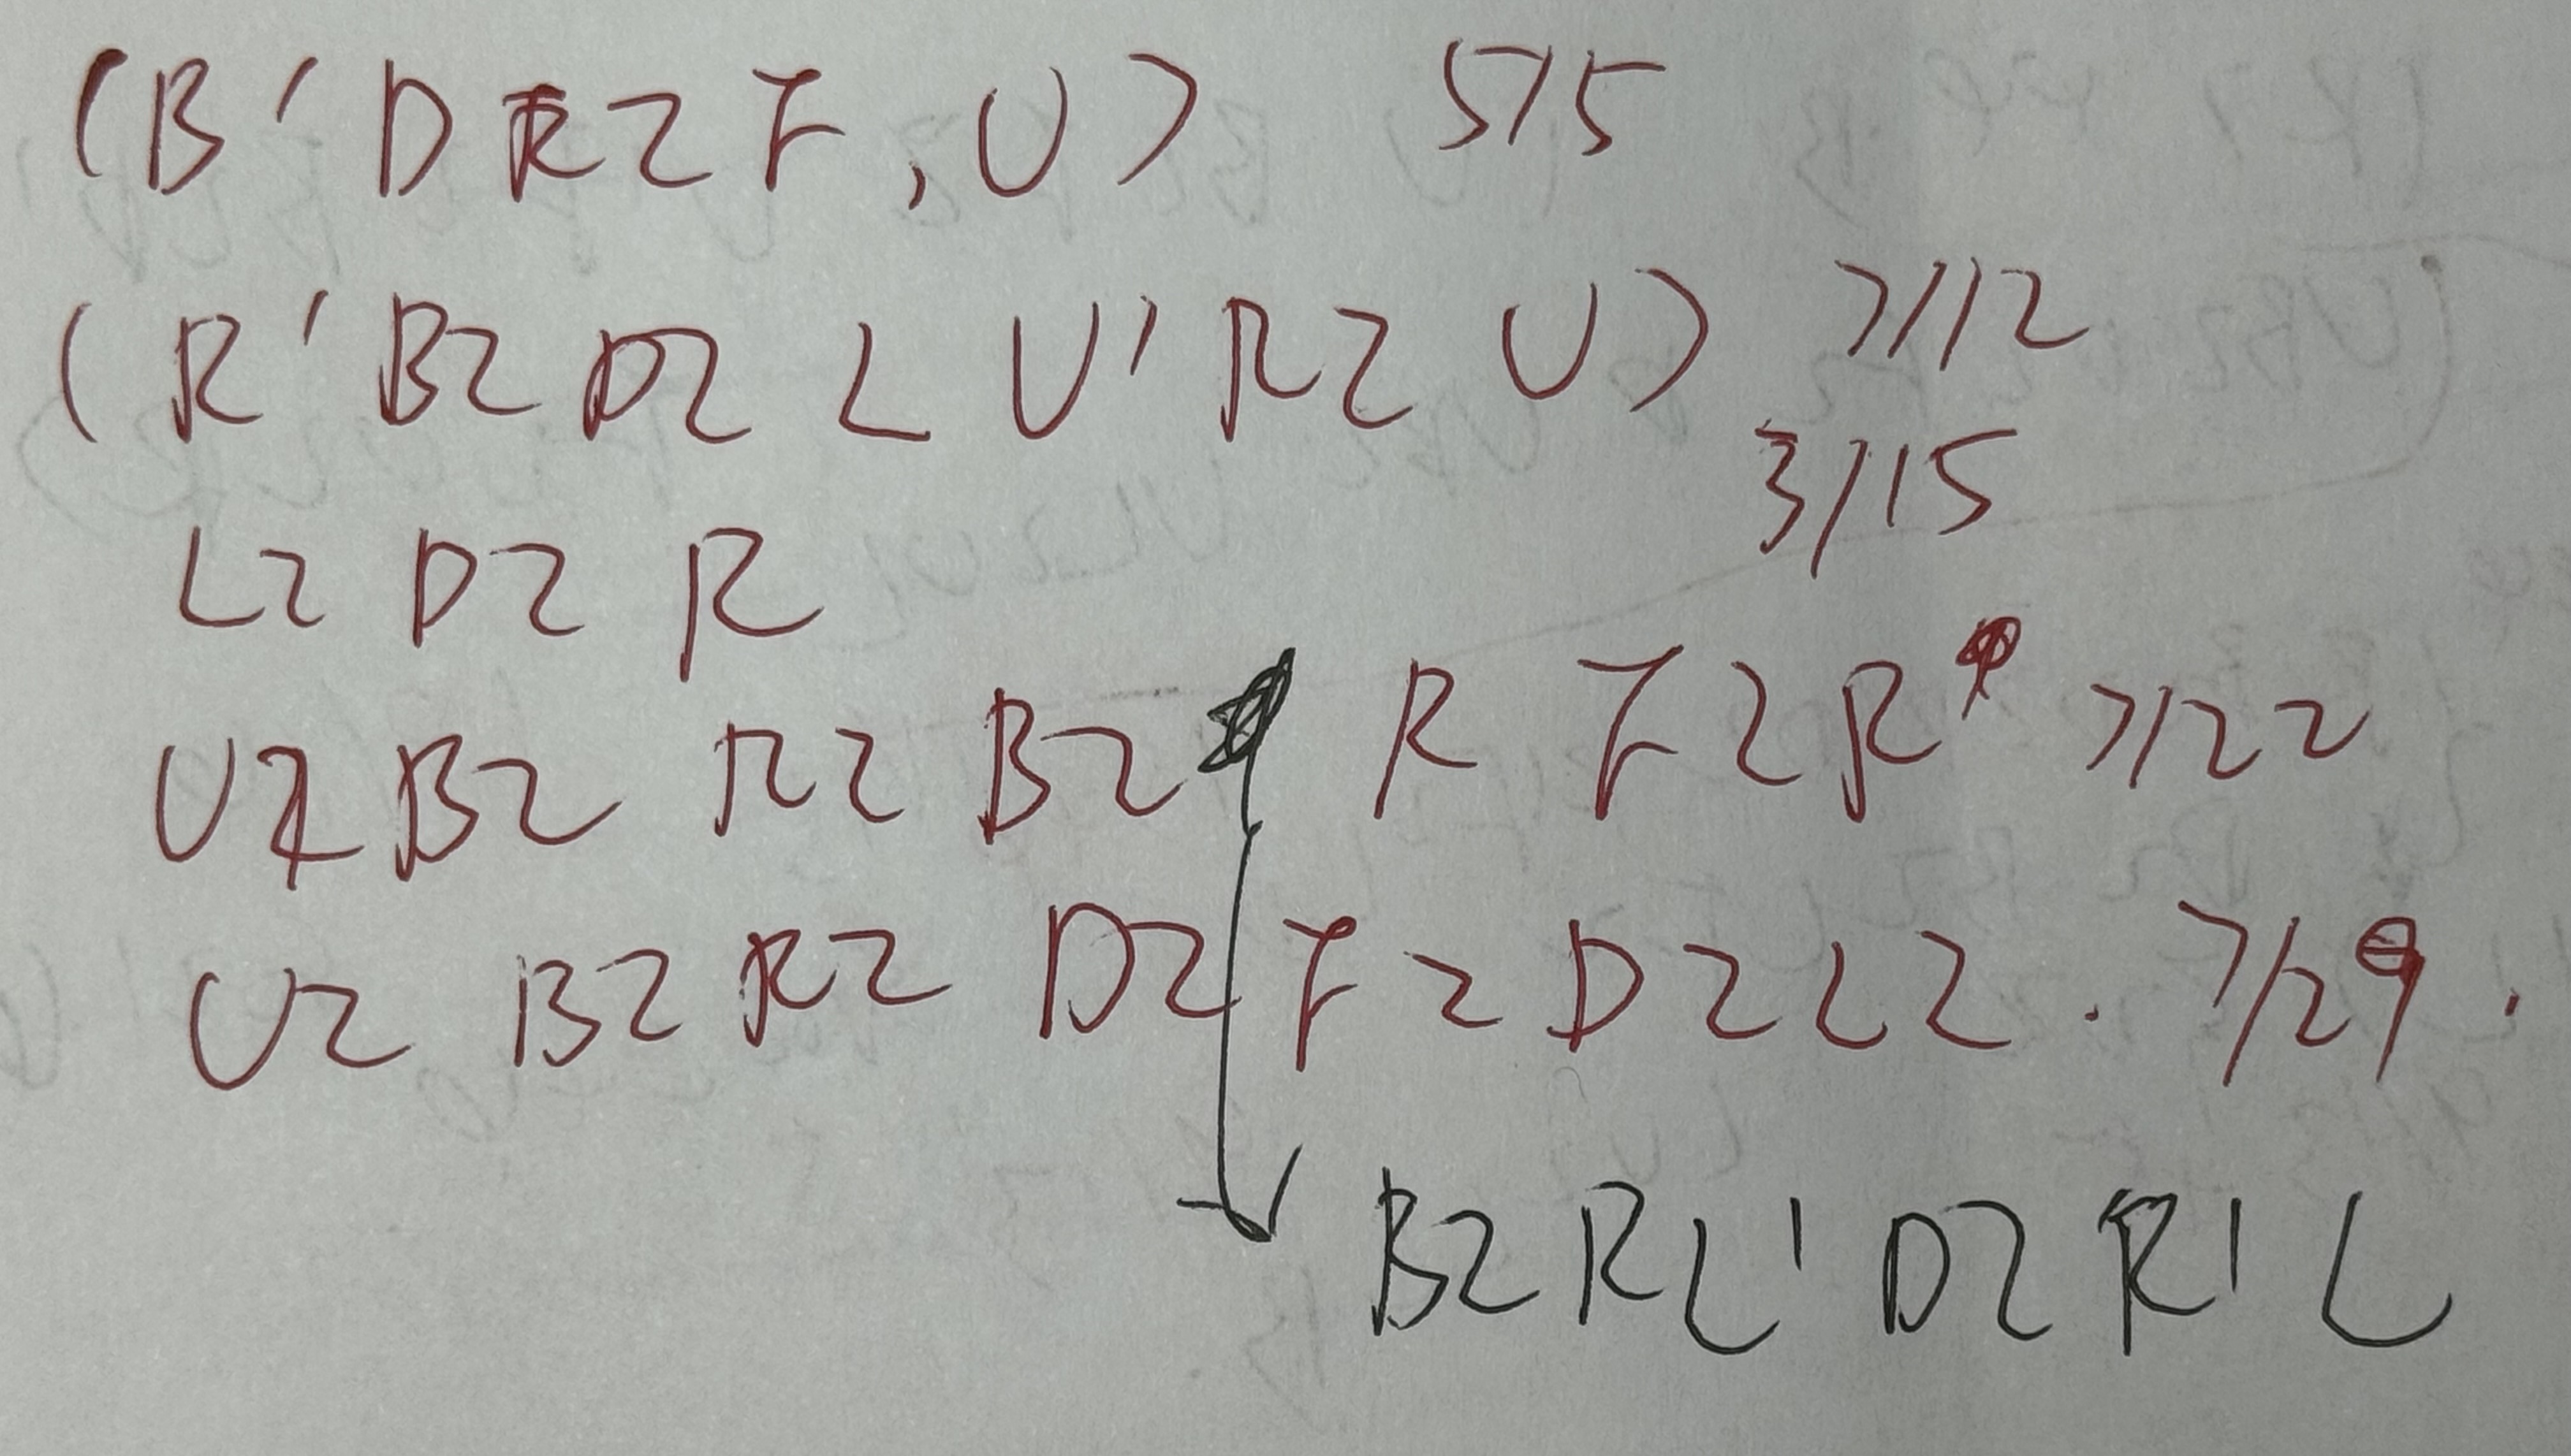 (B' D R2 F, U) 5/5
(R' B2 D2 L U' R2 U) 7/12
L2 D2 R 3/15
U2 B2 R2 B2 R F2 R 7/22
U2 B2 R2 D2 F2 D2 L2. 7/29.
B2 R L' D2 R' L